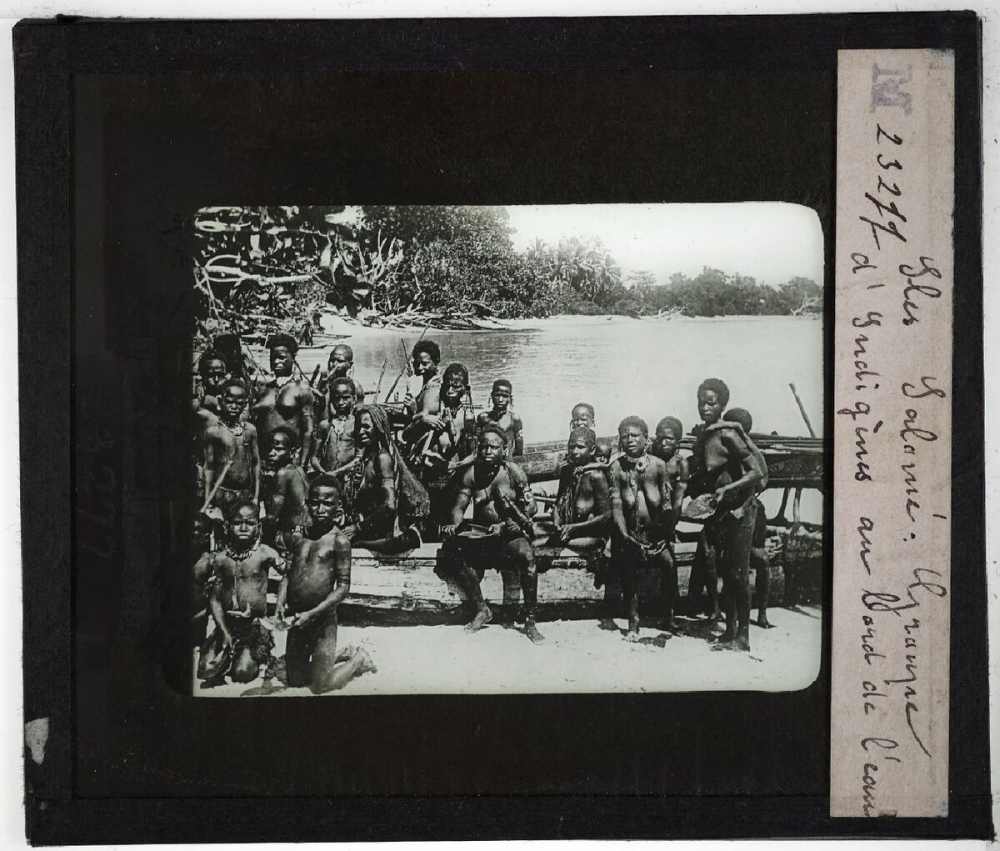 M
2327
Iles Salomé : Groupe
d'Indigènes au bord de l'eau